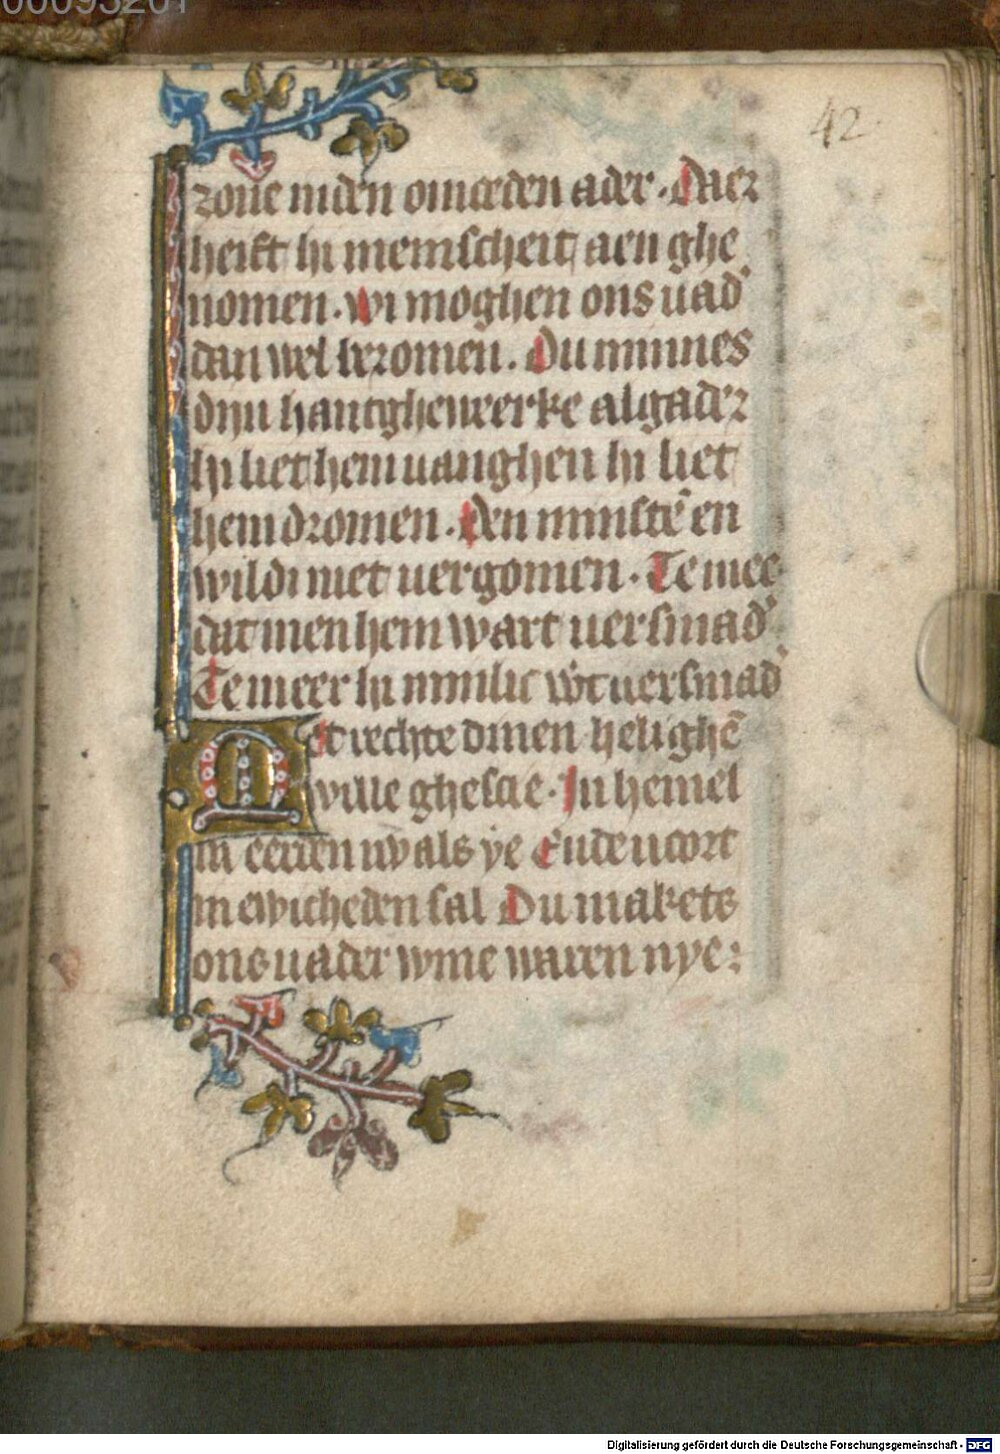 42
zone in den omoeden ader. Daer
heift hi menischeit aen ghe
nomen. wi moghen ons uad'
dan wel beromen. Du minnes
dijn hantghewerke algader
hi liet hem uanghen hi liet
hem dromen. Den minstē en
wildi niet uergomen. Te mee
dat men hem wart uersmad'
Te meer hi minlic wt uersmad'
et rechte dinen helighē
wille ghescie. In hemel
in eerden nv als ye Ende uort
in ewicheden sal Du makets
ons uader wine waren nye:
Digitalisierung gefördert durch die Deutsche Forschungsgemeinschaft - DFG